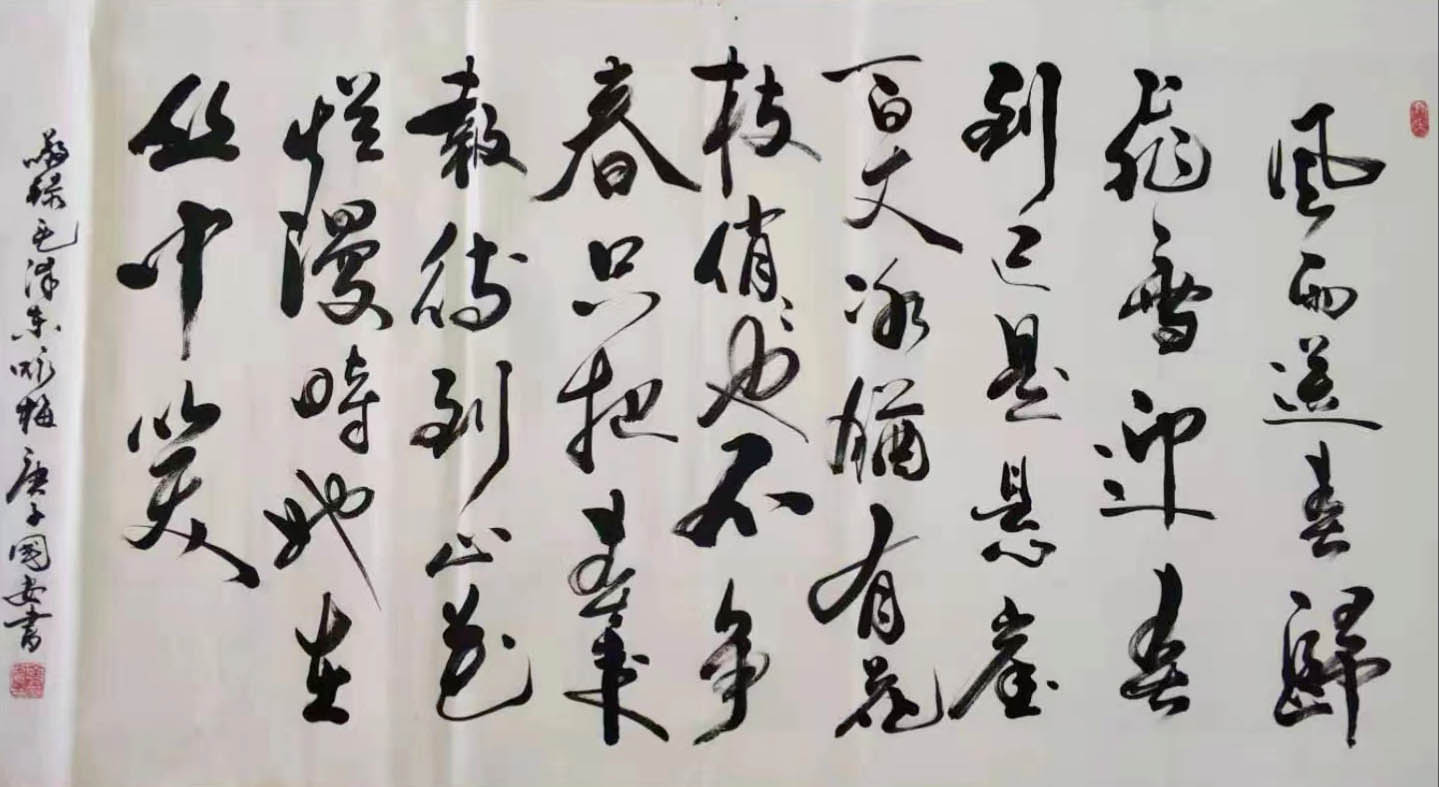 風雨送春歸
飛雪迎春
到已是懸崖
百丈冰猶有花
枝俏俏也不争
春只把春來
報待到山花
爛漫時她在
丛中笑
敬録毛泽東咏梅庚子國安書